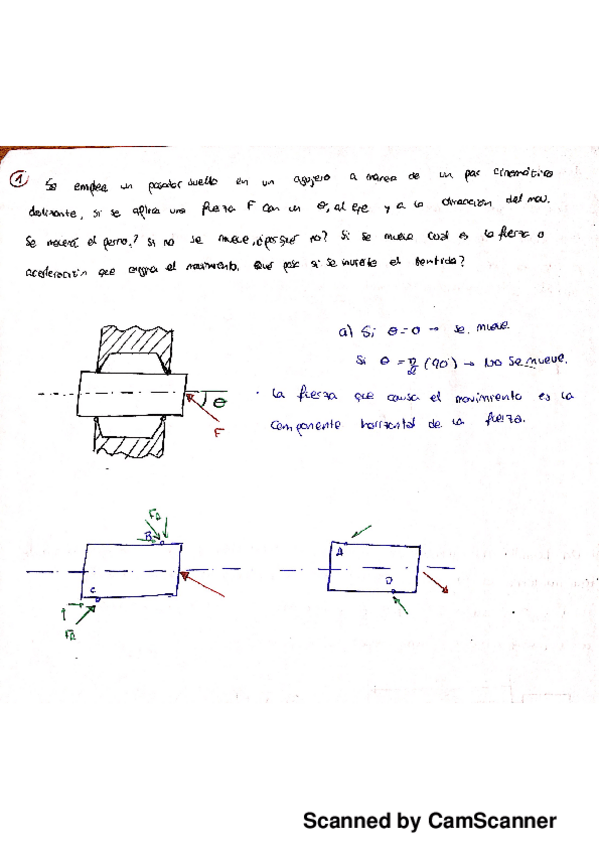 1 Se emplea un pasador suelto en un agujero a manera de un par cinemático
deslizante, si se aplica una fuerza F con un θ, al eje y a la dirección del mov.
Se moverá el perno? si no se mueve, ¿por qué no? Si se mueve cual es la fuerza o
aceleración que el movimiento. Qué pasa si se invierte el sentido?
a) Si θ=0 → se mueve.
Si θ = π/2 (90°) → No se mueve.
· La fuerza que causa el movimiento es la
componente horizontal de la fuerza.
θ
F
FR
B
C
FR
A
D
Scanned by CamScanner